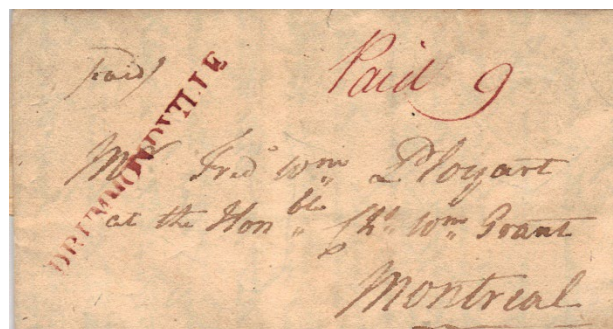 Paid
DRUMMONDVILLE
Paid 9
Mr Fredk Wm a Ployart
at the Honble Chs Wm Grant
Montreal